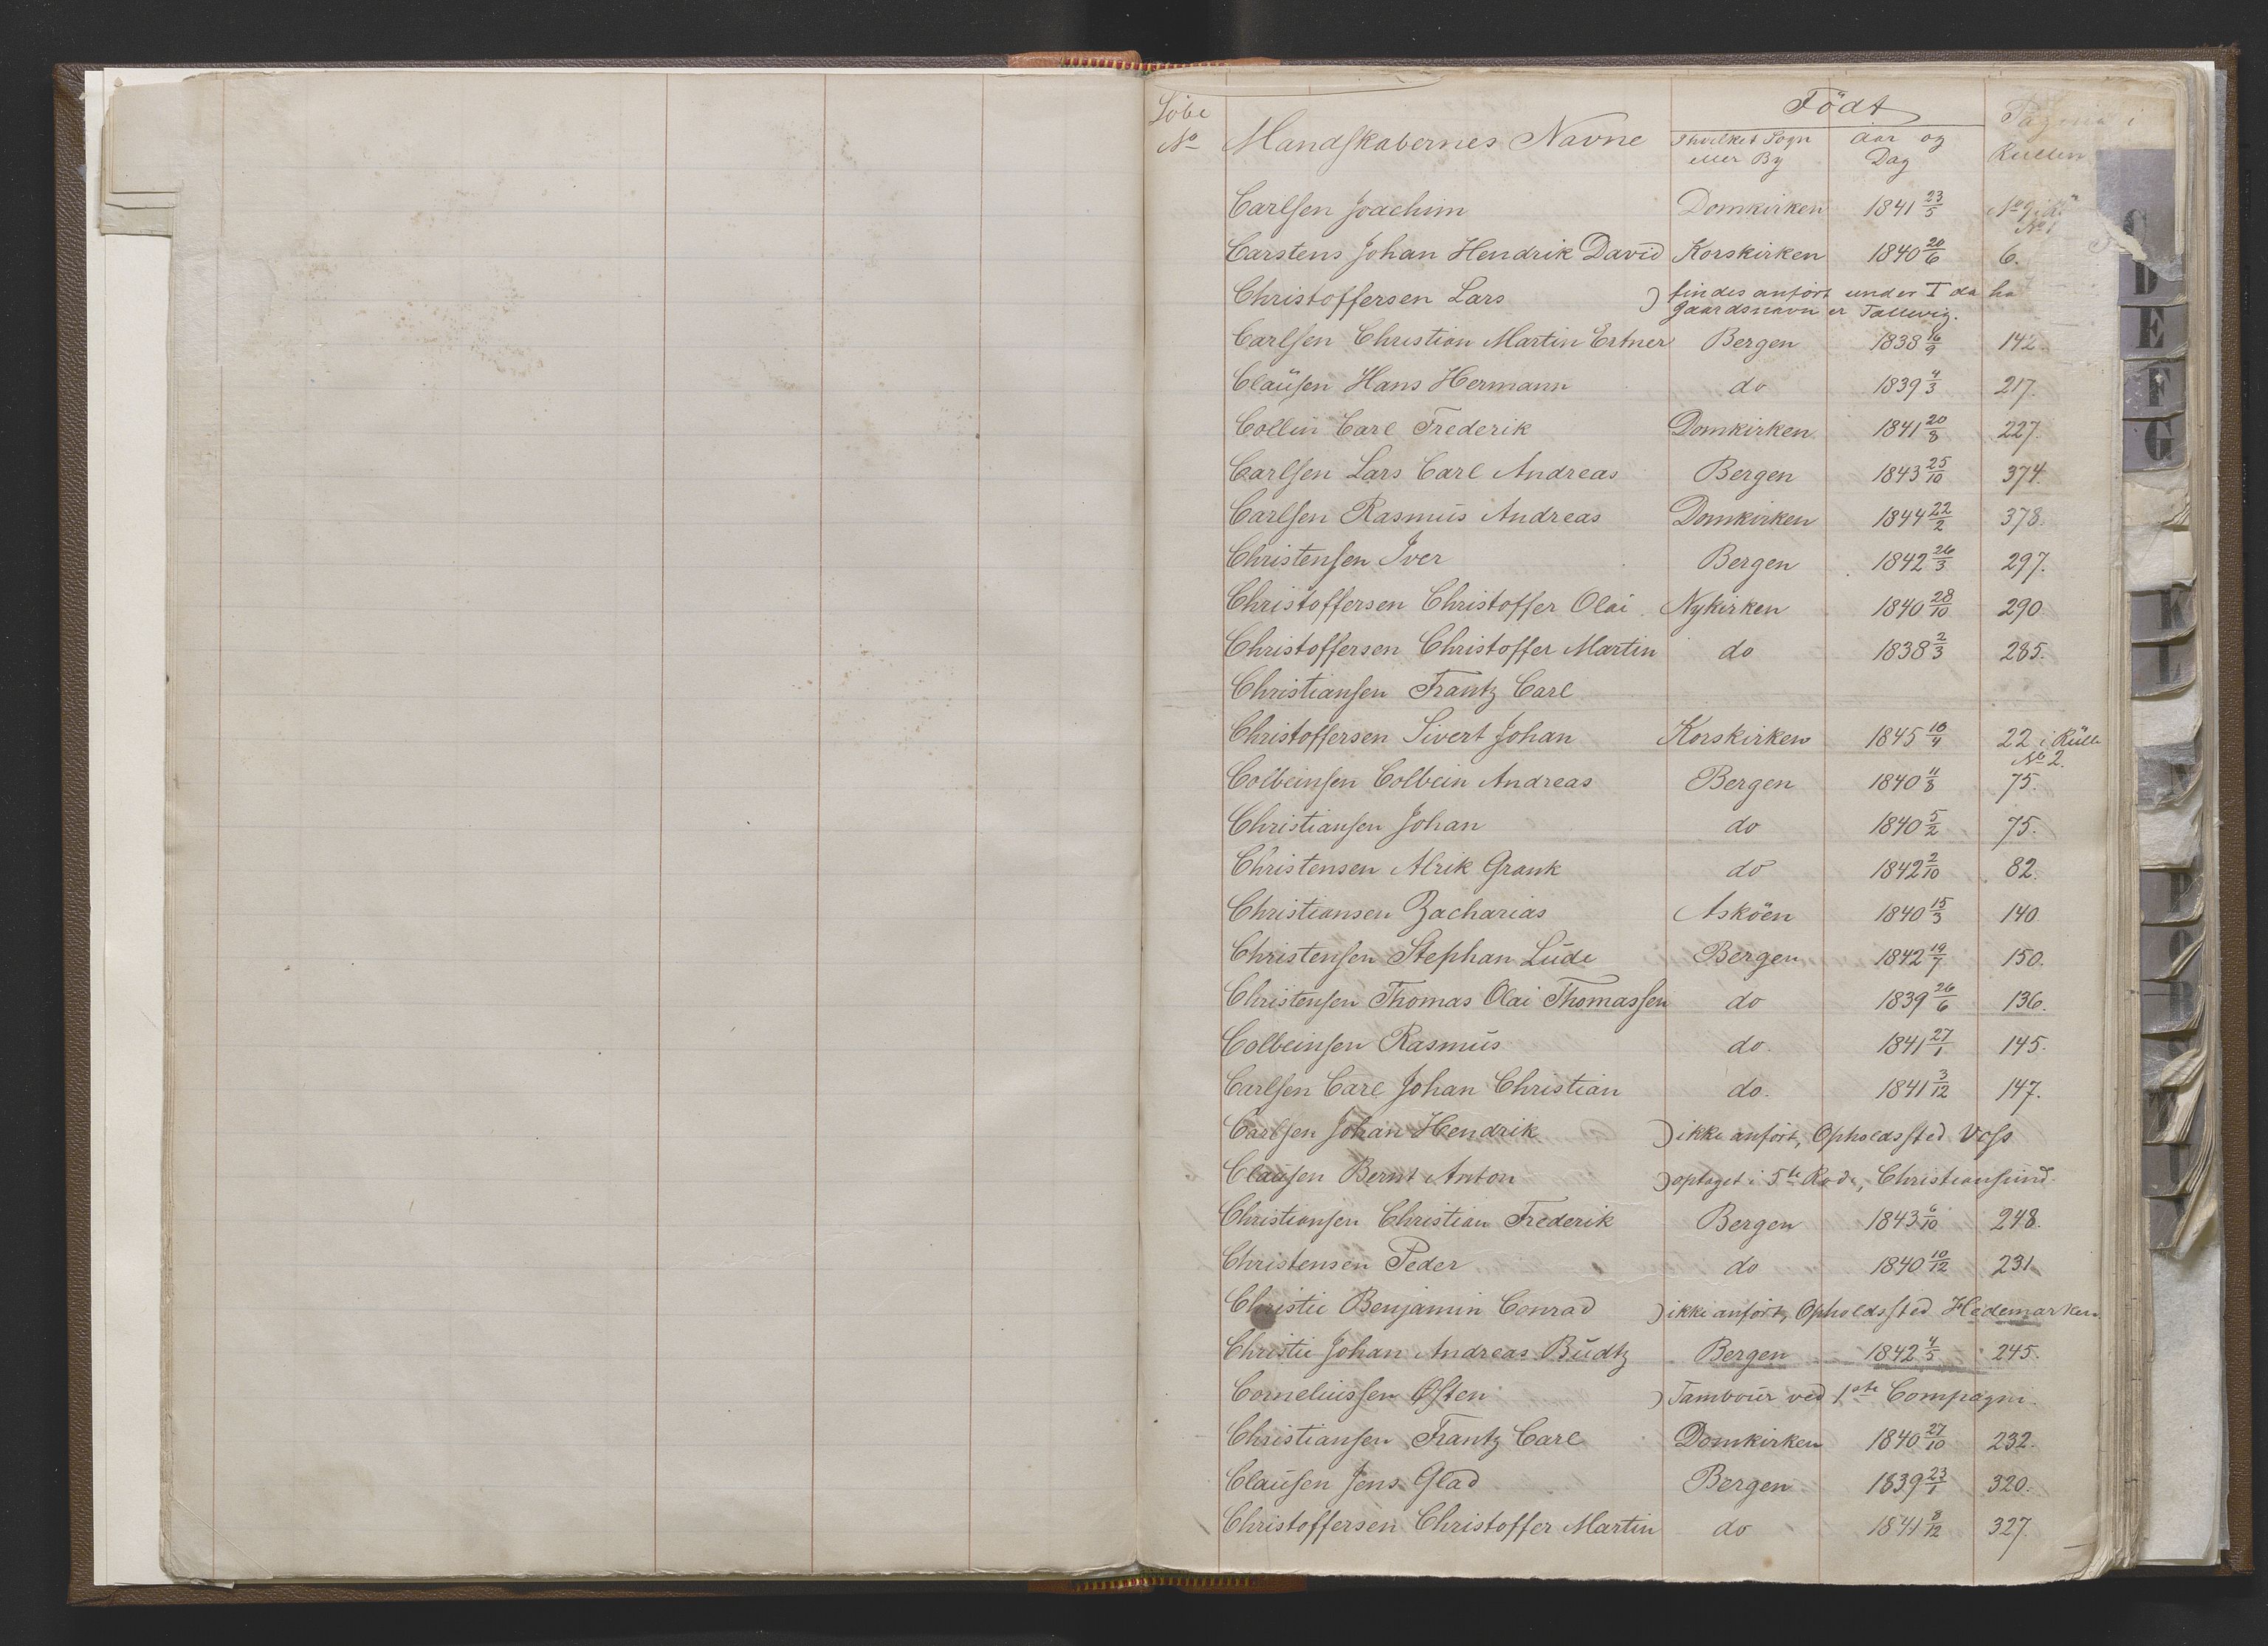 Födt
Löbe
No Mandskabernes Navne I hvilket Sogn Aar og Pagina i
eller By Dag Rullen
Carlsen Joachim Domkirken 1841 23/5
No 1
Carstens Johan Hendrik David Korskirken 1840 20/6 6.
Christoffersen Lars ) findes anfört under T da ha
Gaardsnavn er Tallevig.
Carlsen Christian Martin Ertner Bergen 1838 16/9 142.
Claüsen Hans Hermann do 1839 4/3 217.
Collin Carl Frederik Domkirken 1841 20/8 227.
Carlsen Lars Carl Andreas Bergen 1843 25/10 374.
Carlsen Rasmüs Andreas Domkirken 1844 22/2 378.
Christensen Iver Bergen 1842 26/3 297.
Christoffersen Christoffer Olai Nykirken 1840 28/10 290
Christoffersen Christoffer Martin do 1838 2/3 285.
Christiansen Frantz Carl
Christoffersen Sivert Johan Korskirken 1845 10/4 22 i Rülle
No 2.
Colbeinsen Colbein Andreas Bergen 1840 11/8 75.
Christiansen Johan do 1840 5/2 75.
Christensen Alrik Grank do 1842 2/10 82.
Christiansen Zacharias Asköen 1840 15/3 140
Christensen Stephan Lüde Bergen 1842 19/7 150.
Christensen Thomas Olai Thomassen do 1839 26/6 136.
Colbeinsen Rasmüs do. 1841 27/1 145.
Carlsen Carl Johan Christian do. 1841 3/12 147.
Carlsen Johan Hendrik ) ikke anfört, Opholdssted Voss
Claüsen Bernt Anton ) optaget i 5te Rode, Christiansünd.
Christiansen Christian Frederik Bergen 1843 6/10 248.
Christensen Peder do 1840 10/12 231
Christie Benjamin Conrad ) ikke anfört, Opholdssted Hedemarken.
Christie Johan Andreas Büdtz Bergen 1842 4/5 245.
Corneliussen Østen ) Tamboür ved 1ste Compagni.
Christiansen Frantz Carl Domkirken 1840 27/10 232.
Claüsen Jens Glad Bergen 1839 23/1 320.
Christoffersen Christoffer Martin do 1841 8/12 327.
C
D
E
F
G
K
L
P